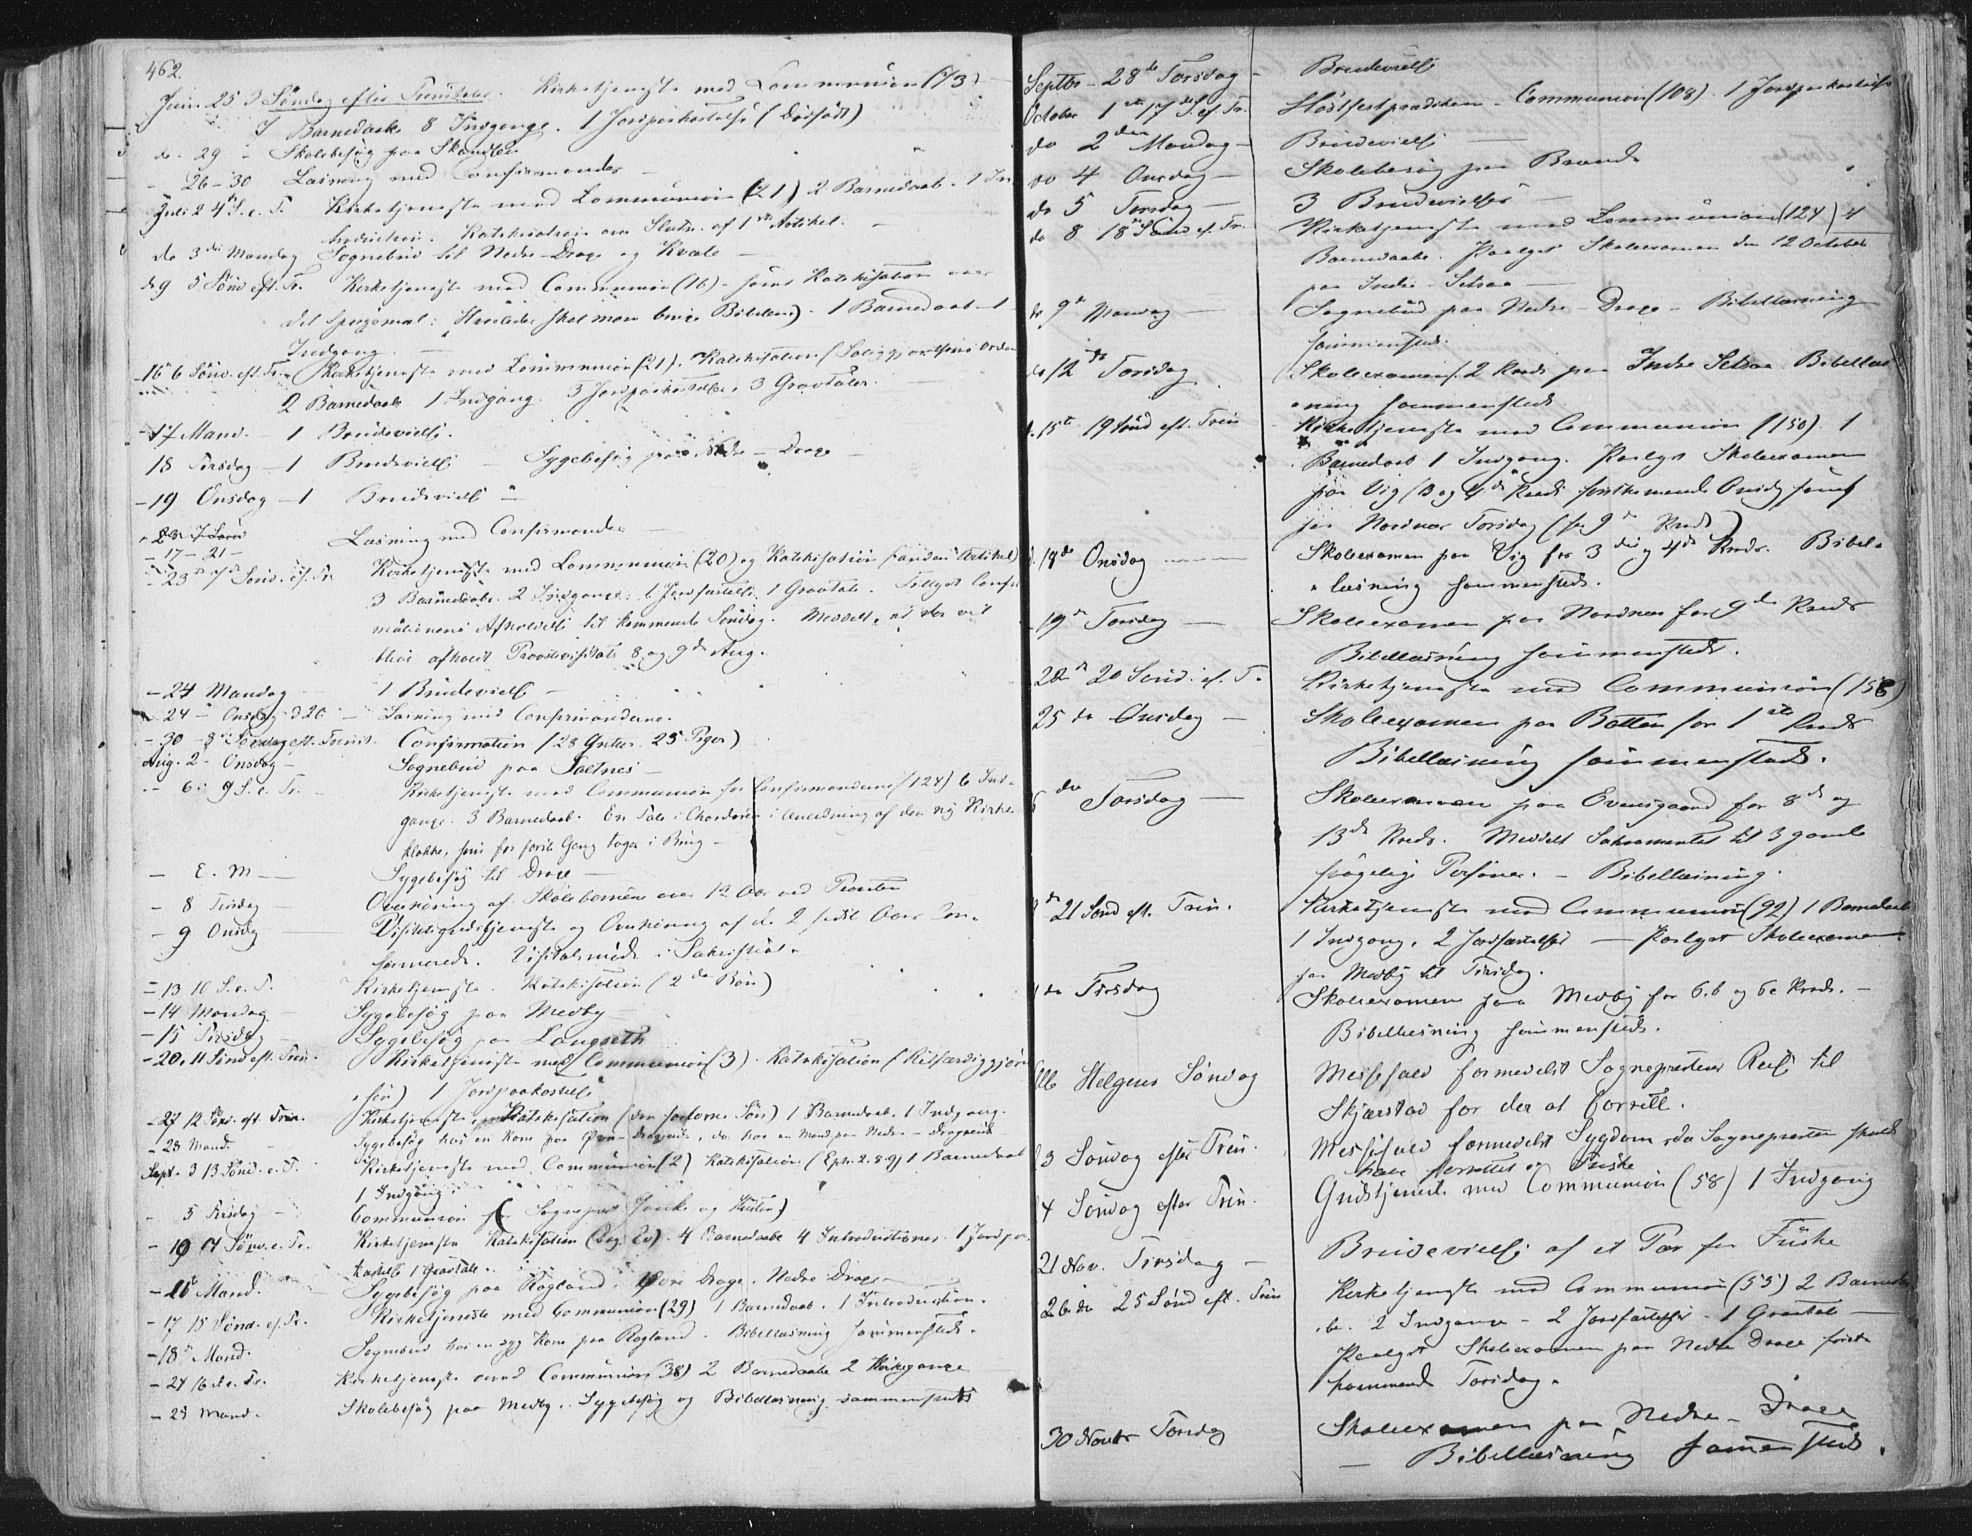 462.
Juni 25 3 Søndag efter Trinitatis. Kirketjeneste med Communion (73)
7 Barnedaab 8 Indgange. 1 Jordpaakastelse (Dødfødt)
do. 29 - Skolebesøg paa
- 26-30 Læsning med Confirmander
Juli 2 4de S. e. T. Kirketjeneste med Communion (21) 2 Barnedaab. 1 In-
troduction. Katekisation over Slutn. af 1ste Artikel.
do 3die Mandag Sognebud til Nedre Drage og Kvale
do 9 5 Sønd. eft. Tr. Kirketjeneste med Communion (16) - samt Katekisation over
det Spørgsmaal: Hvorledes skal man bruge Bibelen) - 1 Barnedaab - 1
Indgang.
- 16 6 Sønd. eft. Tr. Kirketjeneste med Communion (21). Katekisation (Saliggjørelsens Orden
2 Barnedaab 1 Indgang. 3 Jordpaakastelse. 3 Gravtaler.
- 17 Mand. - 1 Brudevielse.
18 Tirsdag - 1 Brudevielse - Sygebesøg paa Nedre - Drage
- 19 Onsdag - 1 Brudevielse
Læsning med Confirmander
- 17 - 21 -
- 23de 7de Sønd. ef. Tr. Kirketjeneste med Communion (20) og Katekisation (anden Artikel)
3 Barnedaab. 2 Indgange. 1 Jordfæstelse. 1 Gravtale. Tillyst Confir
mationens Afholdelse til kommende Søndag. Meddelt, at der vil
blive afholdt Provstevisitats 8 og 9de Aug.
- 24 Mandag 1 Brudevielse -
- 24 - Onsdag d 26 - Læsning med Confirmanderne.
- 30 - 8de Søndag eft. Trinit. Confirmation (28 Gutter. 25 Piger)
Aug. 2 - Onsdag - Sognebud paa Saltnes -
- 6 9 S. e. Tr. Kirketjeneste med Communion for Confirmanderne (124) 6 Ind-
gange. 3 Barnedaab. En Tale i Chordøren i Anledning af den ny Kirke-
klokke, som for første Gang toges i Brug -
- E. M - Sygebesøg til Drage -
- 8 Tirsdag - Overhøring af Skolebørnene over 12 Aar ved Provsten
- 9 Onsdag Visitatsgudstjeneste og Overhøring af de 2 sidste Aars Con-
firmerede. Visitatsmøde i Sakristiet.
- 13 10 S. e. T. Kirketjeneste. Katekisation (2den Bøn)
- 14 Mandag - Sygebesøg paa Medby -
- 15 Tirsdag - Sygebesøg paa Langseth
- 20. 11 Sønd eft. Trin. Kirketjeneste med Communion (3). Katekisation (Retfærdiggjørel
sen) 1 Jordpaakastelse
- 27 12 Sønd. eft. Trin. Kirketjeneste Katekisation (den fortorne Søn) 1 Barnedaab. 1 Indgang.
- 28 Mand. Sygebesøg hos en Kone paa Øvre Drageide, do. hos en Mand paa Nedre - Drageide
Sept. 3 13 Sønd. e. T. Kirketjeneste med Communion (2) Katekisation (Eph. 2. 8. 9) 1 Barnedaab
1 Indgang.
- 5 Tirsdag - Communion for Sognepræst og Hustru)
- 10 14 Sønd. e. Tr. Kirketjeneste Katekisation 4 Barnedaab 4 Introductioner. 1 Jordpaa
kastelse 1 Gravtale.
- 11te Mand. Sygebesøg paa Rogland. Øvre Drage. Nedre Drage -
- 17 15 Sønd. ef. Tr. Kirketjeneste med Communion (29) 1 Barnedaab. 1 Introduction.
- 18de Mand. Sognebud hos en syg Kone paa Rogland. Bibellæsning sammesteds.
- 24 16 S. e. Tr. Kirketjeneste med Communion (38) 2 Barnedaab 2 Kirkegange
- 25 Mand. Skolebesøg paa Medby. Sygebesøg og Bibellæsning sammesteds
Septbr - 28de Torsdag - Brudevielse
October 1ste 17de S. ef. Tr. Høstfestprædiken - Communion (108). 1 Jordpaakastelse
do 2den Mandag - Brudevielse -
do 4 Onsdag - Skolebesøg paa
do 5 Torsdag - 3 Brudevielser -
do 8 18de Sønd ef. Tr. Kirketjeneste med Communion (124) 4
Barnedaab. Paalyst Skoleexamen den 12 October
paa Indre - Setsaa -
do 9de Mandag - Sognebud paa Nedre - Drage - Bibellæsning
sammesteds.
do 12te Torsdag Skoleexamen f. 2 Kreds paa Indre Setsaa. Bibellæs
ning sammesteds
d. 15de 19 Sønd eft. Trin Kirketjeneste med Communion (150). 1
Barnedaab 1 Indgang. Paalyst Skoleexamen
paa Vig (3 og 4de Kreds førstkommende Onsdg samt
paa Nordnæs Torsdag (for 9de Kreds)
d. 18de Onsdag - Skoleexamen paa Vig for 3die og 4de Kreds. Bibel-
læsning sammesteds.
19de Torsdag - Skoleexamen paa Nordnæs for 9de Kreds
Bibellæsning sammesteds.
22de 20 Sønd. ef. T. Kirketjeneste med Communion (158)
25de Onsdag - Skoleexamen paa Botten for 1ste Kreds
Bibellæsning sammesteds.
de Torsdag - Skoleexamen paa Evensgaard for 8de og
13de Kreds. Meddelt Sakramentet til 3 gamle
Personer. - Bibellæsning.
21 Sønd eft. Trin. Kirketjeneste med Communion (92) 1 Barnedaab
1 Indgang. 2 Jordfæstelser - Paalyst Skoleexamen
paa Medby til Tirsdag.
Tirsdag Skoleexamen paa Medby for 6.b og 6c Kreds. -
Bibellæsning sammesteds.
Alle Helgens Søndag Messefald formedelst Sognepræstens Reise til
Skjærstad for der at forrette.
3 Søndag efter Trin. Messefald formedelst Sygdom, da Sognepræsten skulde
have forrettet i Fuske
4 Søndag efter Trin. Gudstjeneste med Communion (58) 1 Indgang
21 Nov. Tirsdag - Brudevielse af et Par fra Fuske
26de 25 Sønd eft. Trin Kirketjeneste med Communion (55) 2 Barneda
be. 2 Indgange - 2 Jordfæstelser - 1 Gravtale -
Paalyst Skoleexamen paa Nedre Drage først-
kommende Torsdag.
30 Novbr Torsdag Skoleexamen paa Nedre - Drage
- Bibellæsning sammesteds.